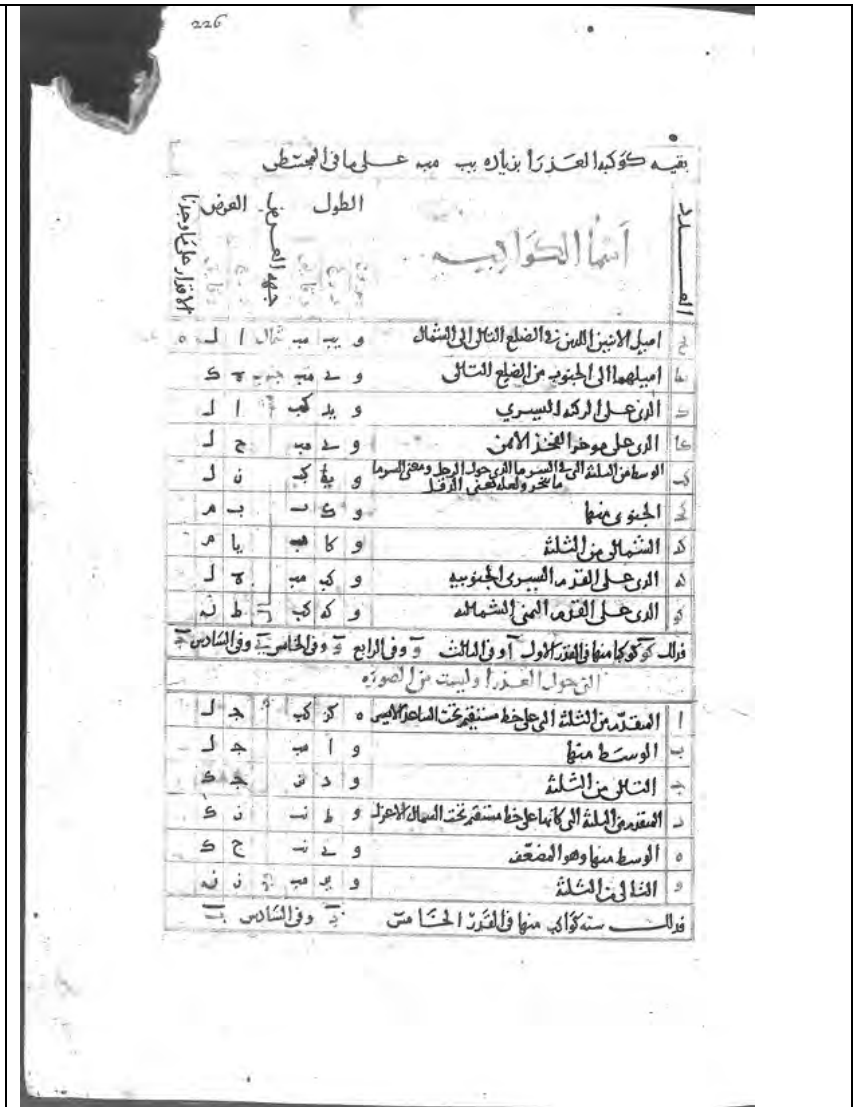 226
بقيه كوكبه العذرا بزياده يب مب على ما فى المجسطى
العدد اسما الكواكب الطول جهة العرض العرض الاقدار على ما وجدنا
بروج درج دقايق درج دقايق
يح اميل الاثنين اللذين فى الضلع التالى الى الشمال و يب مب شمال ا ل ه
يط اميلهما الى الجنوب من الضلع التالى و مب جنوب ك
ك الذى على الركبه اليسرى و يد كب ا ل
كا الذى على موخر الفخذ الايمن و مب ح ل
كب الوسط من الثلثة التى فى السرما الذى حول الرجل ومعنى السرما و يط ل
الجنوبى منها و ك ب م
كد الشمالى من الثلثة و كا مب يا م
كه الذى على القدم اليسرى الجنوبيه و كب مب ل
كو الذى على القدم اليمنى الشماليه و كه كب ط ن
فذلك كو كوكبا منها فى القدر الاول ا وفى الثالث و وفى الرابع وفى الخامس وفى السادس
التى حول العذرا وليست من الصورة
ا المتقدم من الثلثة التى على خط مستقيم تحت الساعد الايسر ه كز كب ج ل
ب الوسط منها و ا مب ج ل
ج التالى من الثلثة و د ن ج ك
د المتقدم من الثلثة التى كانها على خط مستقيم تحت السماك الاعزل و ط ن ك
ه الوسط منها وهو المضعف و ح ك
و التالى من الثلثة و مب ن
فذلك سته كواكب منها فى القدر الخامس د وفى السادس ب